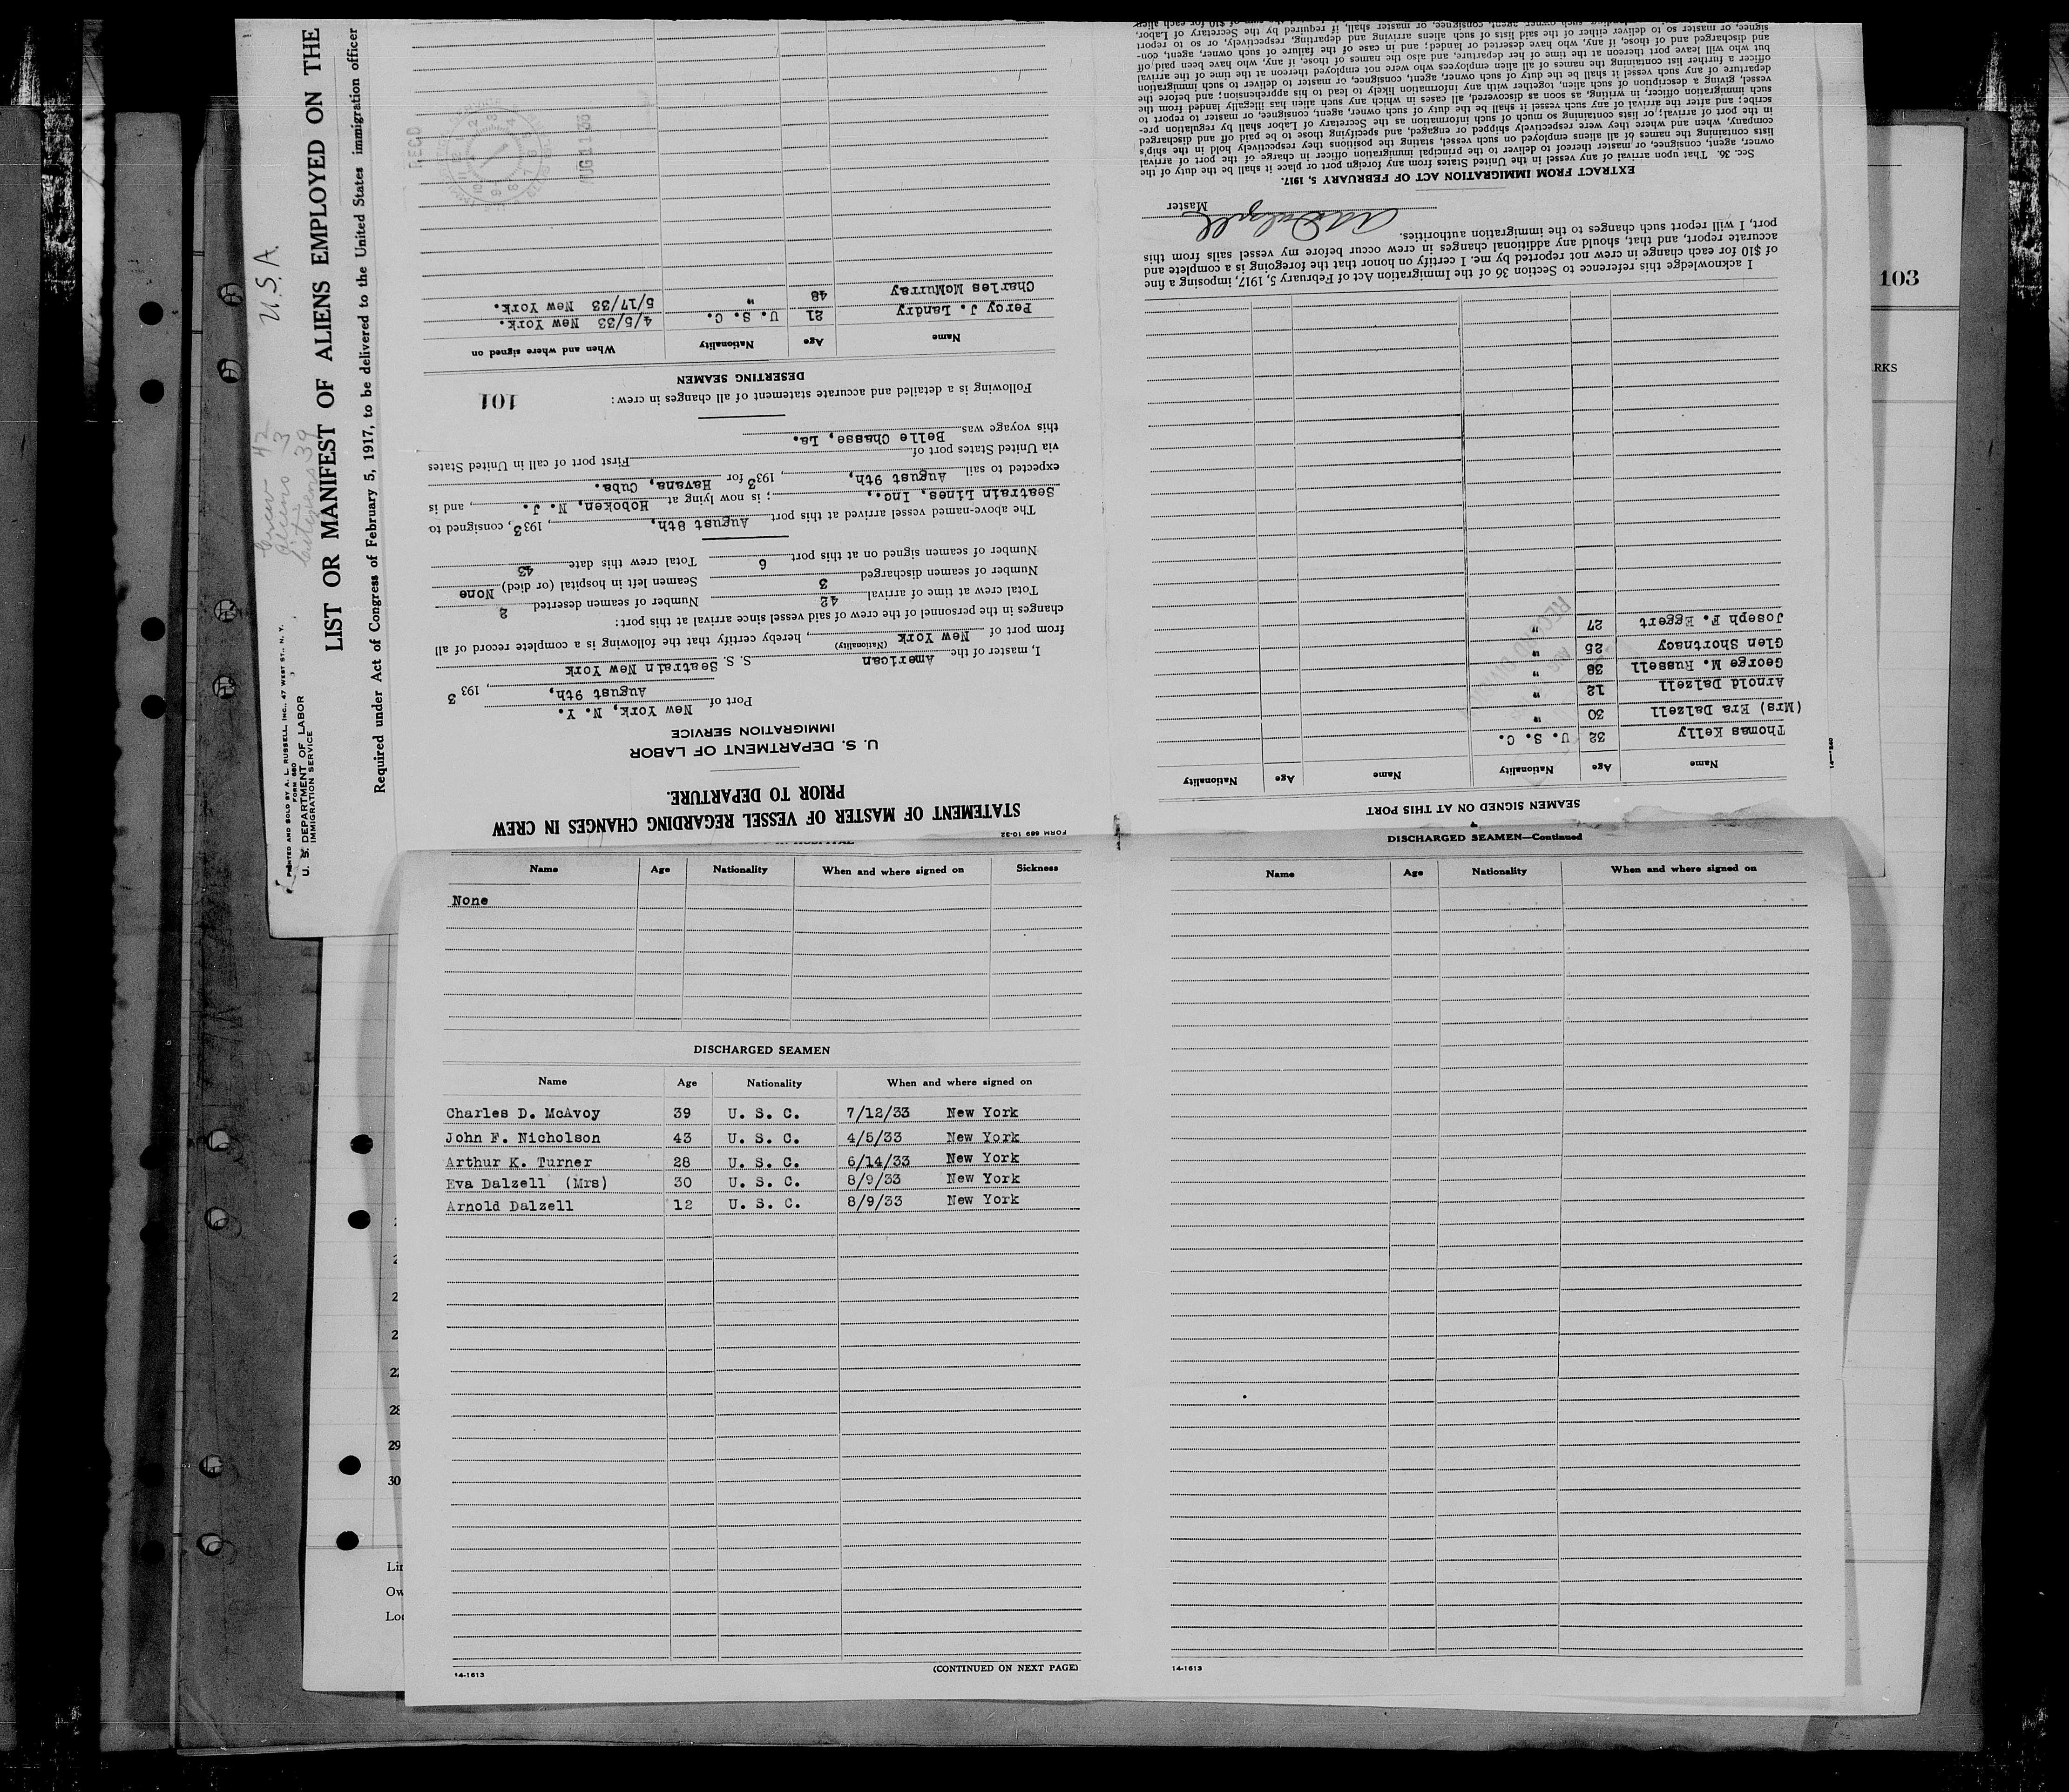 U.S.A.
Crew 42
Aliens 3
Citizens 39
PRINTED AND SOLD BY A. L. RUSSELL, INC., 47 WEST ST., N. Y.
FORM 680
U. S. DEPARTMENT OF LABOR
IMMIGRATION SERVICE
LIST OR MANIFEST OF ALIENS EMPLOYED ON THE
Required under Act of Congress of February 5, 1917, to be delivered to the United States immigration officer
FORM 689 10-32
STATEMENT OF MASTER OF VESSEL REGARDING CHANGES IN CREW
PRIOR TO DEPARTURE.
U. S. DEPARTMENT OF LABOR
IMMIGRATION SERVICE
Port of New York, N. Y.
August 9th, , 193 3
I, master of the American S. S. Seatrain New York
(Nationality)
from port of New York , hereby certify that the following is a complete record of all
changes in the personnel of the crew of said vessel since arrival at this port:
Total crew at time of arrival 42 Number of seamen deserted 2
Number of seamen discharged 3 Seamen left in hospital (or died) None
Number of seamen signed on at this port 6 Total crew this date 43
The above-named vessel arrived at this port August 8th, , 1933, consigned to
Seatrain Lines, Inc., ; is now lying at Hoboken, N. J. , and is
expected to sail August 9th, , 1933 for Havana, Cuba.
via United States port of First port of call in United States
this voyage was Belle Chasse, La.
Following is a detailed and accurate statement of all changes in crew:
101
DESERTING SEAMEN
Name Age Nationality When and where signed on
Percy J. Landry 21 U. S. C. 4/5/33 New York.
Charles McMurray 48 " 5/17/33 New York.
REC'D
AUG 11 33
SEAMEN SIGNED ON AT THIS PORT
Name Age Nationality Name Age Nationality
Thomas Kelly 32 U. S. C.
(Mrs) Era Dalzell 30 "
Arnold Dalzell 12 "
George M. Russell 38 "
Glen Shortnacy 25 "
Joseph F. Eggert 27 "
I acknowledge this reference to Section 36 of the Immigration Act of February 5, 1917, imposing a fine
of $10 for each change in crew not reported by me. I certify on honor that the foregoing is a complete and
accurate report, and that, should any additional changes in crew occur before my vessel sails from this
port, I will report such changes to the immigration authorities.
Dalzell
Master
EXTRACT FROM IMMIGRATION ACT OF FEBRUARY 5, 1917.
Sec. 36. That upon arrival of any vessel in the United States from any foreign port or place it shall be the duty of the
owner, agent, consignee, or master thereof to deliver to the principal immigration officer in charge of the port of arrival
lists containing the names of all aliens employed on such vessel, stating the positions they respectively hold in the ship's
company, when and where they were respectively shipped or engaged, and specifying those to be paid off and discharged
in the port of arrival; or lists containing so much of such information as the Secretary of Labor shall by regulation pre-
scribe; and after the arrival of any such vessel it shall be the duty of such owner, agent, consignee, or master to report to
such immigration officer, in writing, as soon as discovered, all cases in which any such alien has illegally landed from the
vessel, giving a description of such alien, together with any information likely to lead to his apprehension; and before the
departure of any such vessel it shall be the duty of such owner, agent, consignee, or master to deliver to such immigration
officer a further list containing the names of all alien employees who were not employed thereon at the time of the arrival
but who will leave port thereon at the time of her departure, and also the names of those, if any, who have been paid off
and discharged and of those, if any, who have deserted or landed; and in case of the failure of such owner, agent, con-
signee, or master so to deliver either of the said lists of such aliens arriving and departing, respectively, or so to report
such owner, agent, consignee, or master shall, if required by the Secretary of Labor,
103
RKS
Name Age Nationality When and where signed on Sickness
None
DISCHARGED SEAMEN
Name Age Nationality When and where signed on
Charles D. McAvoy 39 U. S. C. 7/12/33 New York
John F. Nicholson 43 U. S. C. 4/5/33 New York
Arthur K. Turner 28 U. S. C. 6/14/33 New York
Eva Dalzell (Mrs) 30 U. S. C. 8/9/33 New York
Arnold Dalzell 12 U. S. C. 8/9/33 New York
14-1613
(CONTINUED ON NEXT PAGE)
DISCHARGED SEAMEN—Continued
Name Age Nationality When and where signed on
14-1613
28
29
30